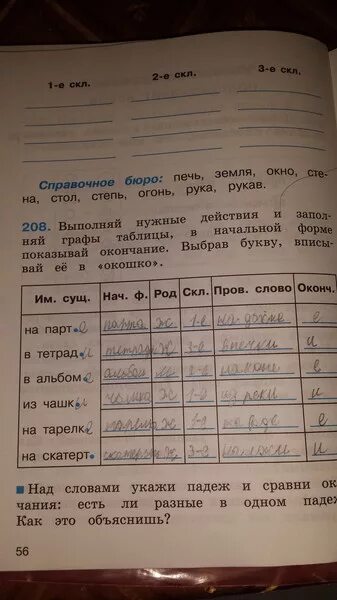 1-е скл. 2-е скл. 3-е скл.
Справочное бюро: печь, земля, окно, сте-
на, стол, степь, огонь, рука, рукав.
208. Выполняй нужные действия и запол-
няй графы таблицы, в начальной форме
показывай окончание. Выбрав букву, вписы-
вай её в «окошко».
Им. сущ. Нач. ф. Род Скл. Пров. слово Оконч.
на парте парта ж 1-е е
в тетради тетрадь ж 3-е в печки и
в альбоме альбом 2-е е
из чашки чашка ж 1-е из реки и
на тарелке ж 1-е е
на скатерти скатерть ж 3-е и
Над словами укажи падеж и сравни ок
чания: есть ли разные в одном падеж
Как это объяснишь?
56